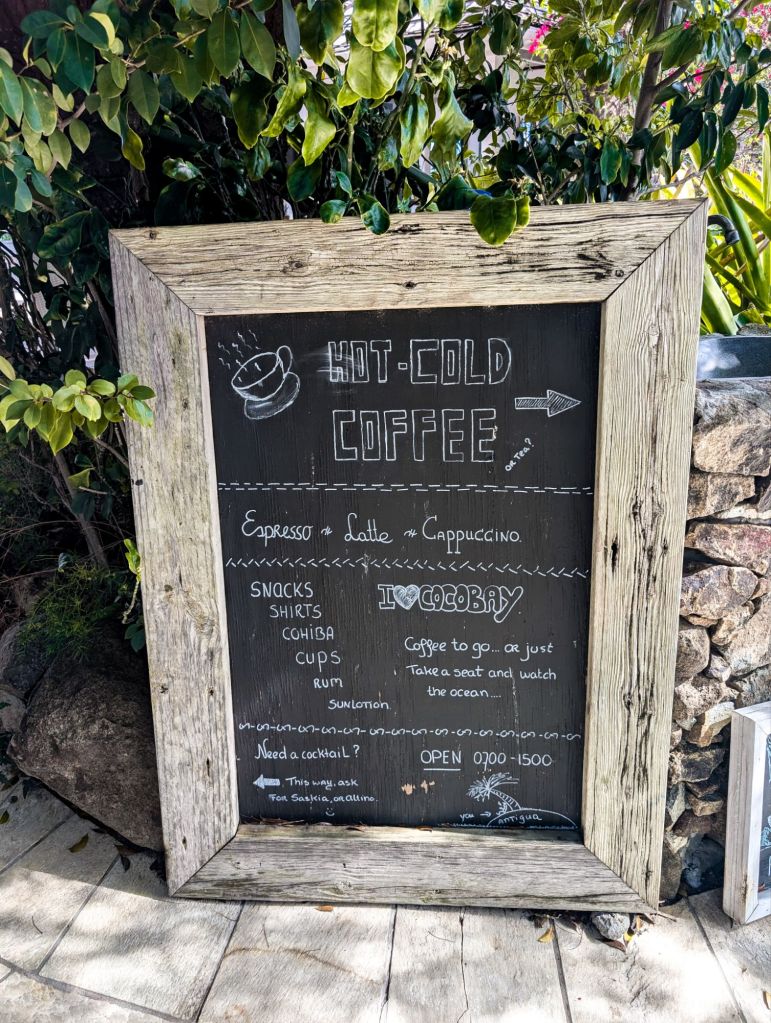 HOT-COLD
COFFEE
OR TEA?
Espresso ~ Latte ~ Cappuccino.
SNACKS
SHIRTS
COHIBA
CUPS
RUM
SUNLOTION.
I ♥ COCOBAY
Coffee to go... or just
Take a seat and watch
the ocean....
Need a cocktail?
← This way, ask
For Saskia, or Altino.
OPEN 0700-1500
you →
ANTIGUA